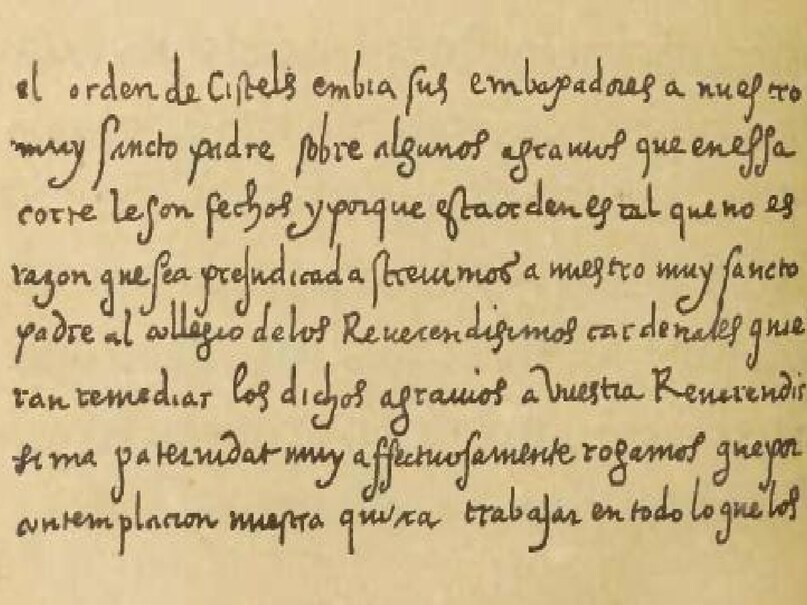 el orden de Cistels embia sus embaxadores a nuestro
muy sancto padre sobre algunos agravios que en essa
corte le son fechos y porque esta orden es tal que no es
razon que sea prejudicada screvimos a nuestro muy sancto
padre al collegio delos Reverendisimos cardenales quie
ran remediar los dichos agravios a Vuestra Reverendis
sima paternidat muy affectuosamente rogamos que por
contemplacion nuestra quiera trabajar en todo lo que los